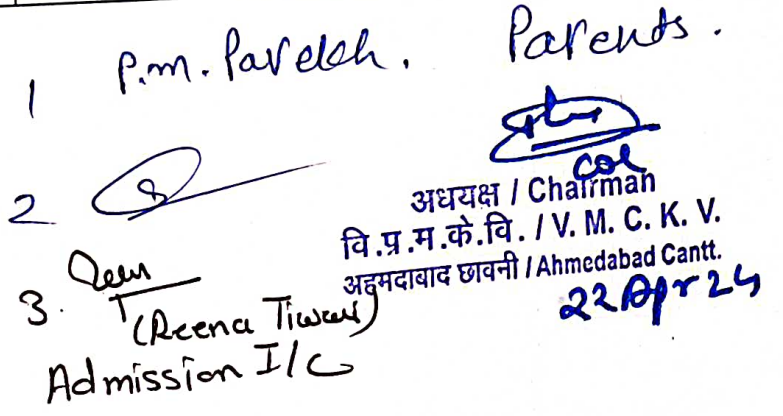 1 P.m. Parekh. Parents.
2
3. (Reena Tiwari)
Admission I/C
Col
अधयक्ष / Chairman
वि.प्र.म.के.वि. / V. M. C. K. V.
अहमदाबाद छावनी / Ahmedabad Cantt.
22 Apr 24